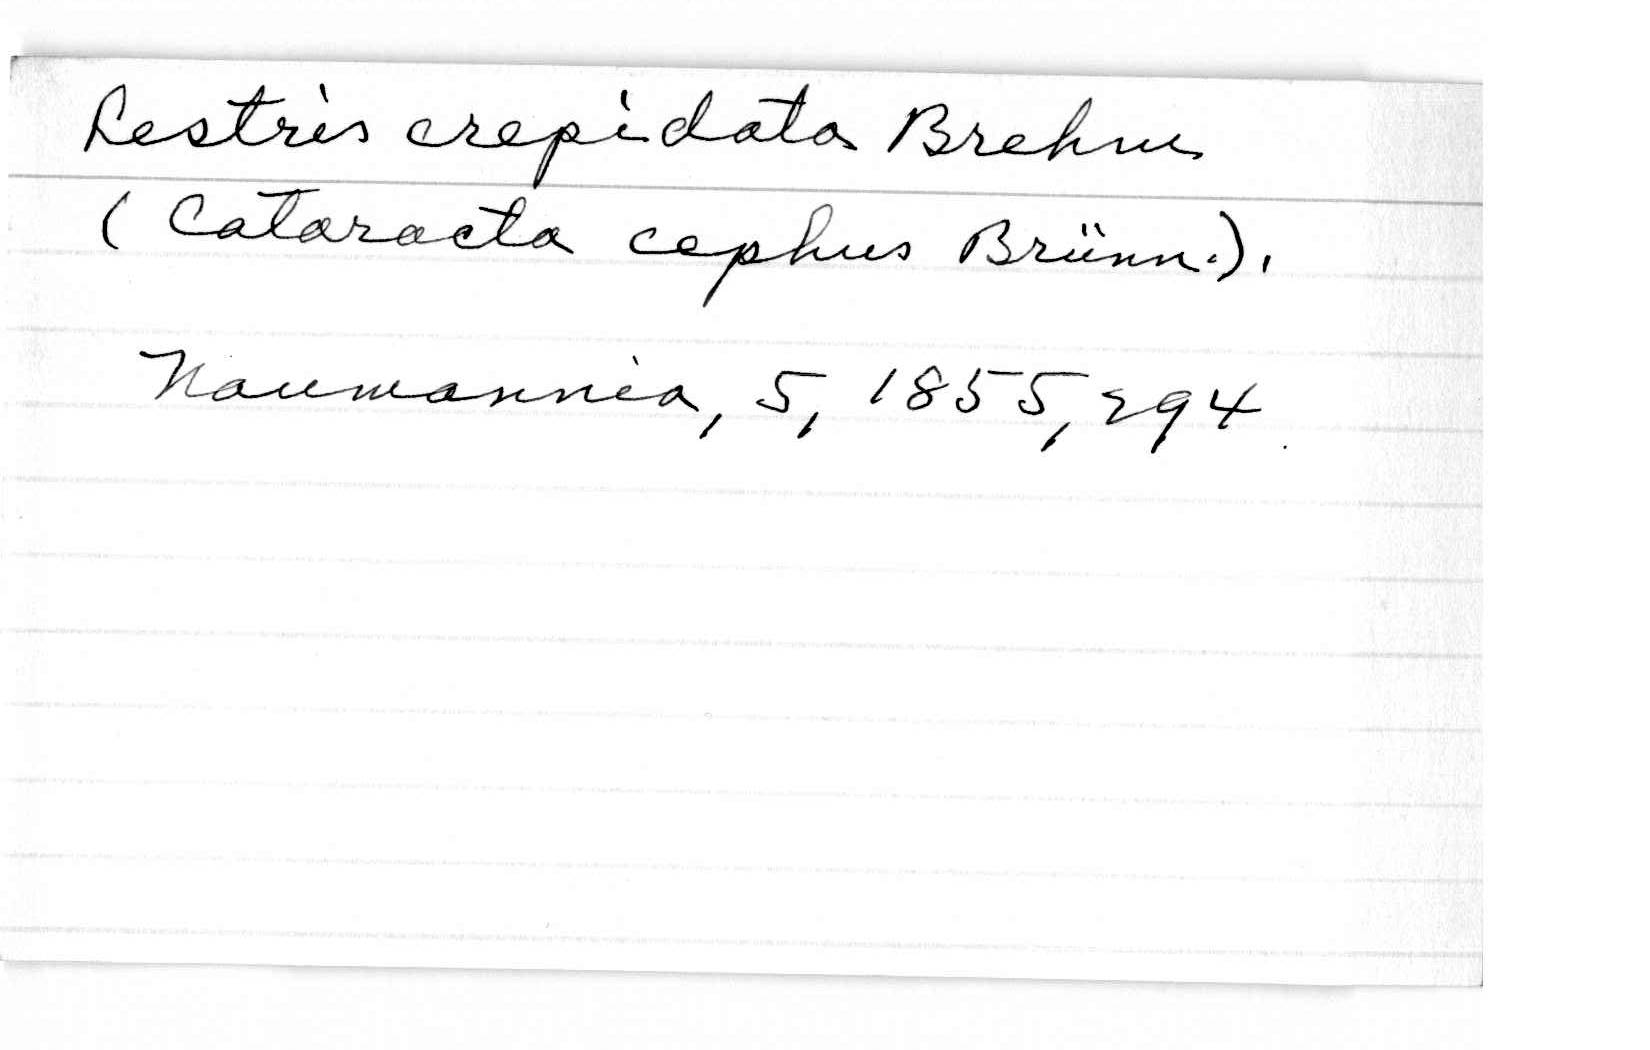 Lestris crepidata Brehm
(Cataracta cephus Brünn.).
Naumannia, 5, 1855, 294.